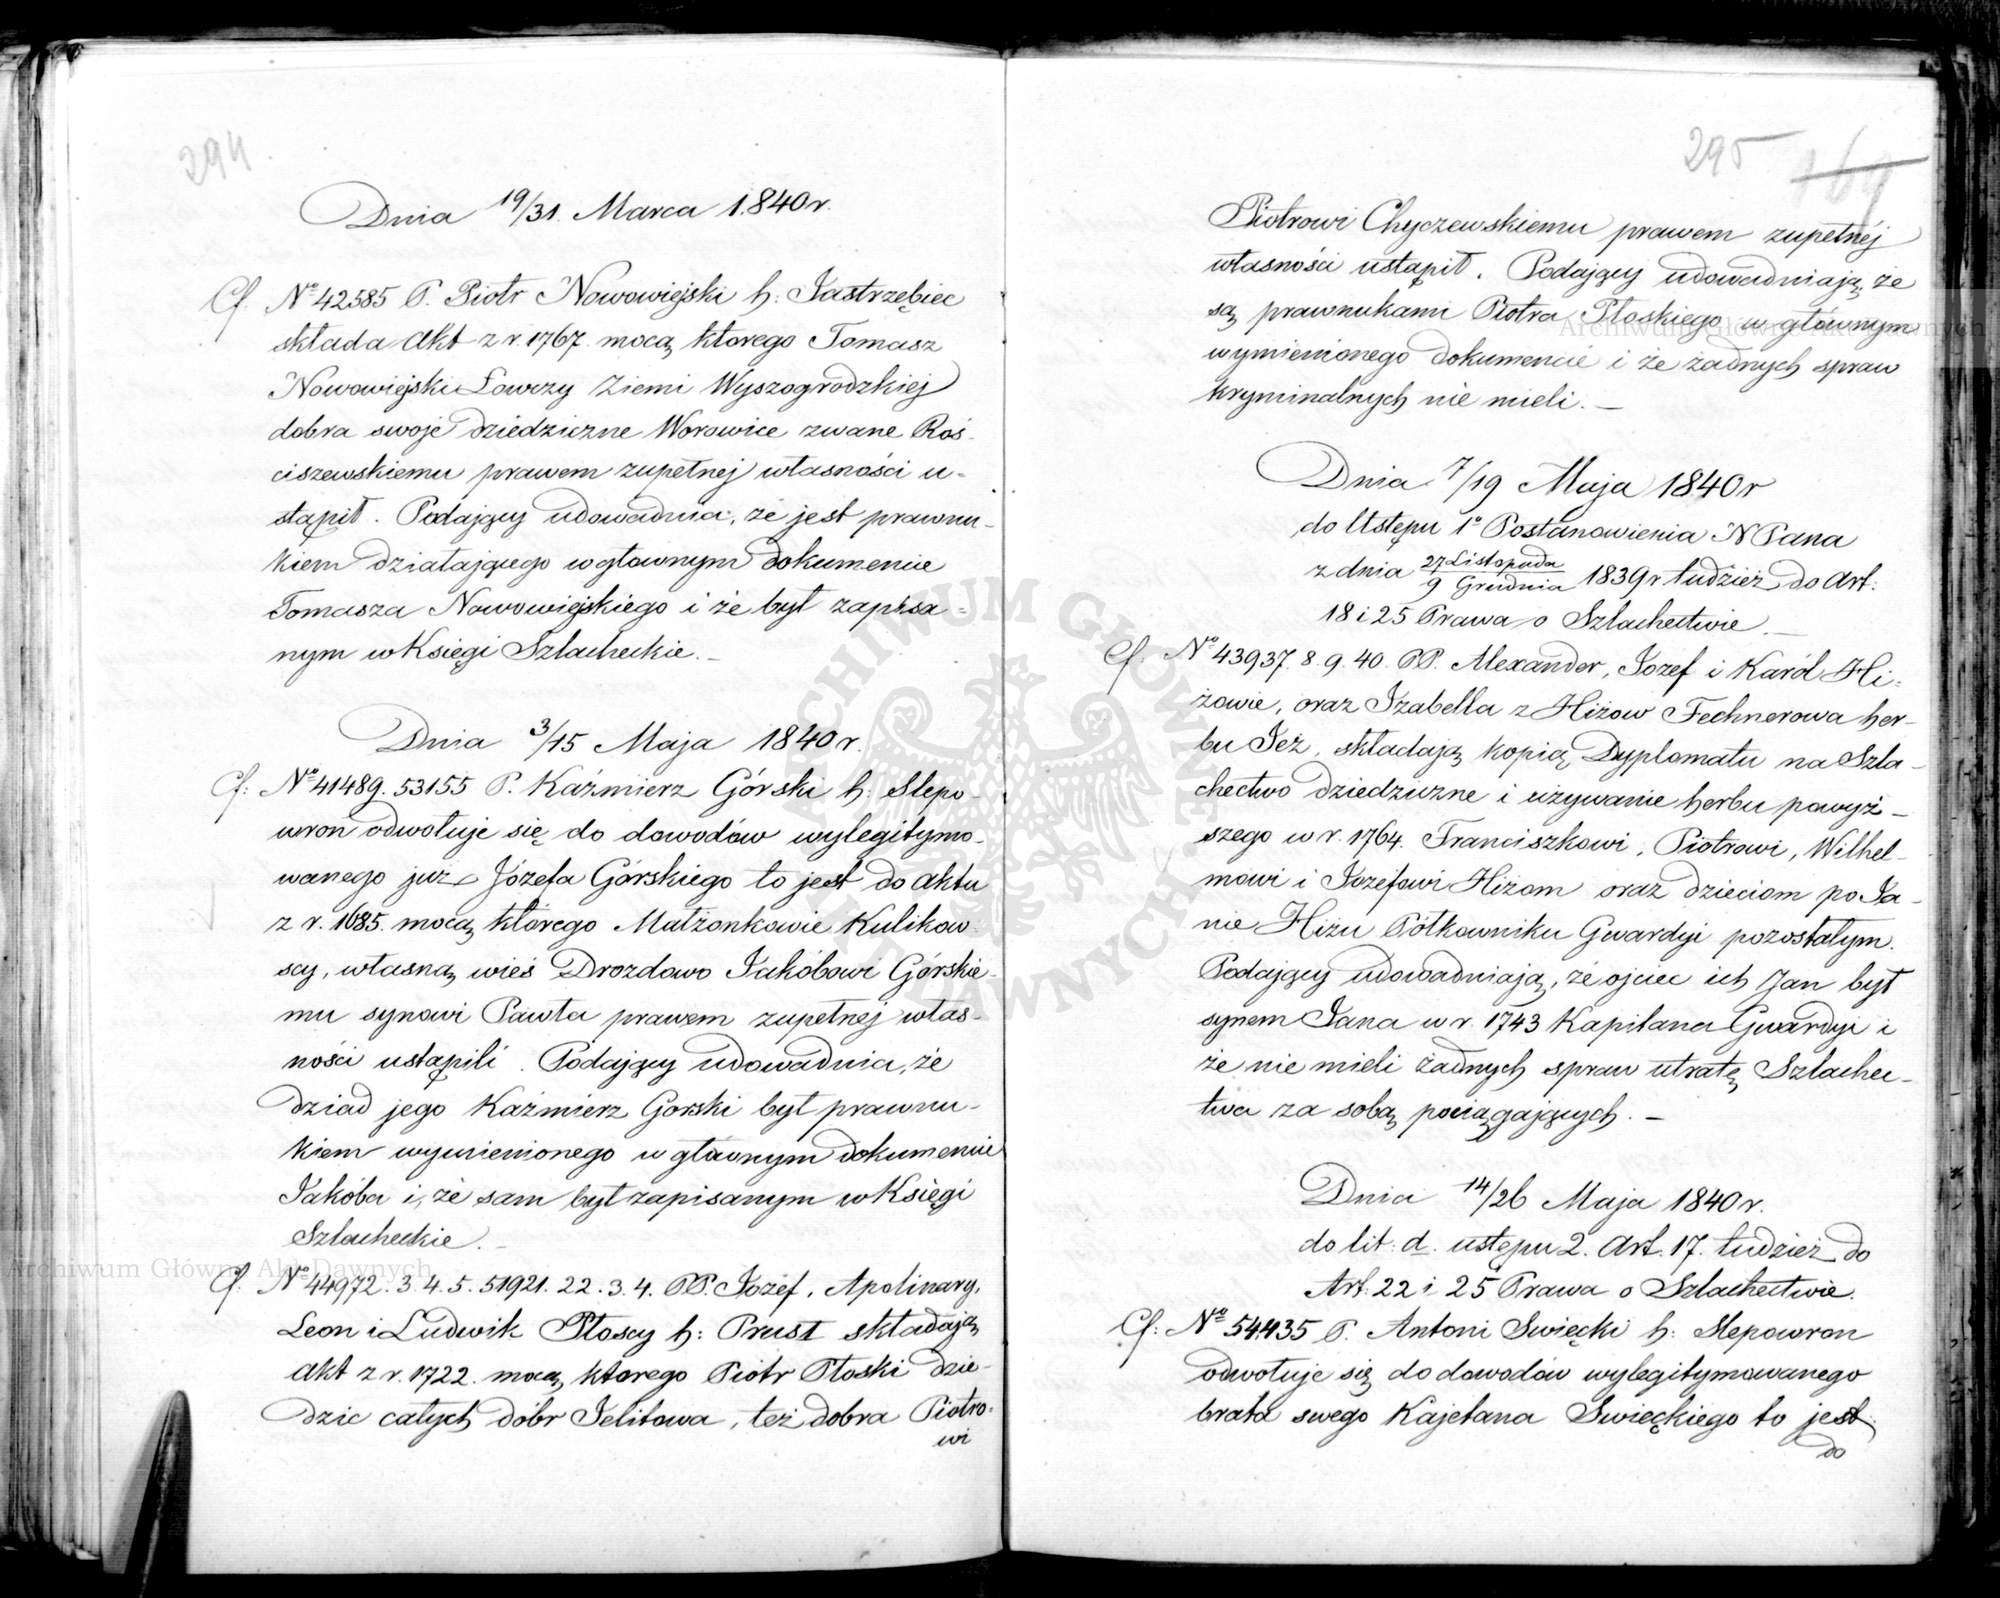 294
Dnia 19/31 Marca 1840 r.
Cf. № 42585 P. Piotr Nowowiejski h: Jastrzębiec
składa Akt z r. 1767. mocą ktorego Tomasz
Nowowiejski Łowczy Ziemi Wyszogrodzkiej
dobra swoje dziedziczne Worowice zwane Roś-
ciszewskiemu prawem zupełnej własności u-
stąpił. Podający udowadnia, że jest prawnu-
kiem działającego w głownym dokumencie
Tomasza Nowowiejskiego i że był zapisa-
nym w Księgi Szlacheckie.—
Dnia 3/15 Maja 1840 r.
Cf: № 41489. 53155 P. Kaźmierz Górski h: Slepo-
wron odwołuje się do dowodów wylegitymo-
wanego już Józefa Górskiego to jest do Aktu
z r. 1685. mocą którego Małżonkowie Kulikow-
scy, własną wieś Drozdowo Jakóbowi Górskie-
mu synowi Pawła prawem zupełnej włas-
ności ustąpili. Podający udowadnia, że
dziad jego Kaźmierz Gorski był prawnu-
kiem wymienionego w głownym dokumencie
Jakóba i, że sam był zapisanym w Księgi
Szlacheckie.—
Cf: № 44972. 3. 4. 5. 51921. 22. 3. 4. PP. Jozef, Apolinary,
Leon i Ludwik Płoscy h: Prus I składają
Akt z r. 1722. mocą ktorego Piotr Płoski dzie-
dzic całych dóbr Jelitowa, też dobra Piotro-
wi
295
169
Piotrowi Chyczewskiemu prawem zupełnéj
własności ustąpił. Podający udowadniają, że
są prawnukami Piotra Płoskiego w głównym
wymienionego dokumencie i że żadnych spraw
kryminalnych nie mieli.—
Dnia 7/19 Maja 1840 r
do Ustępu 1° Postanowienia N Pana
z dnia 27 Listopada / 9 Grudnia 1839 r tudzież do Art:
18 i 25 Prawa o Szlachectwie.—
Cf: № 43937. 8. 9. 40. PP. Alexander, Jozef i Karól Hi-
żowie, oraz Izabella z Hiżow Fechnerowa her-
bu Jeż, składają kopią Dyplomatu na Szla-
chectwo dziedziczne i używanie herbu powyż-
szego w r. 1764. Franciszkowi, Piotrowi, Wilhel-
mowi i Jozefowi Hiżom oraz dzieciom po Ja-
nie Hiżu Półkowniku Gwardyi pozostałym.
Podający udowadniają, że ojciec ich Jan był
synem Jana w r. 1743 Kapitana Gwardyi i
że nie mieli żadnych spraw utratę Szlachec-
twa za sobą pociągających.—
Dnia 14/26 Maja 1840 r.
do lit: d. ustępu 2. Art. 17. tudzież do
Art: 22 i 25 Prawa o Szlachectwie.
Cf: № 54435 P. Antoni Swięcki h: Slepowron
odwołuje się do dowodów wylegitymowanego
brata swego Kajetana Swięckiego to jest
do
ARCHIWUM GŁÓWNE AKT DAWNYCH
Archiwum Główne Akt Dawnych
Archiwum Główne Akt Dawnych